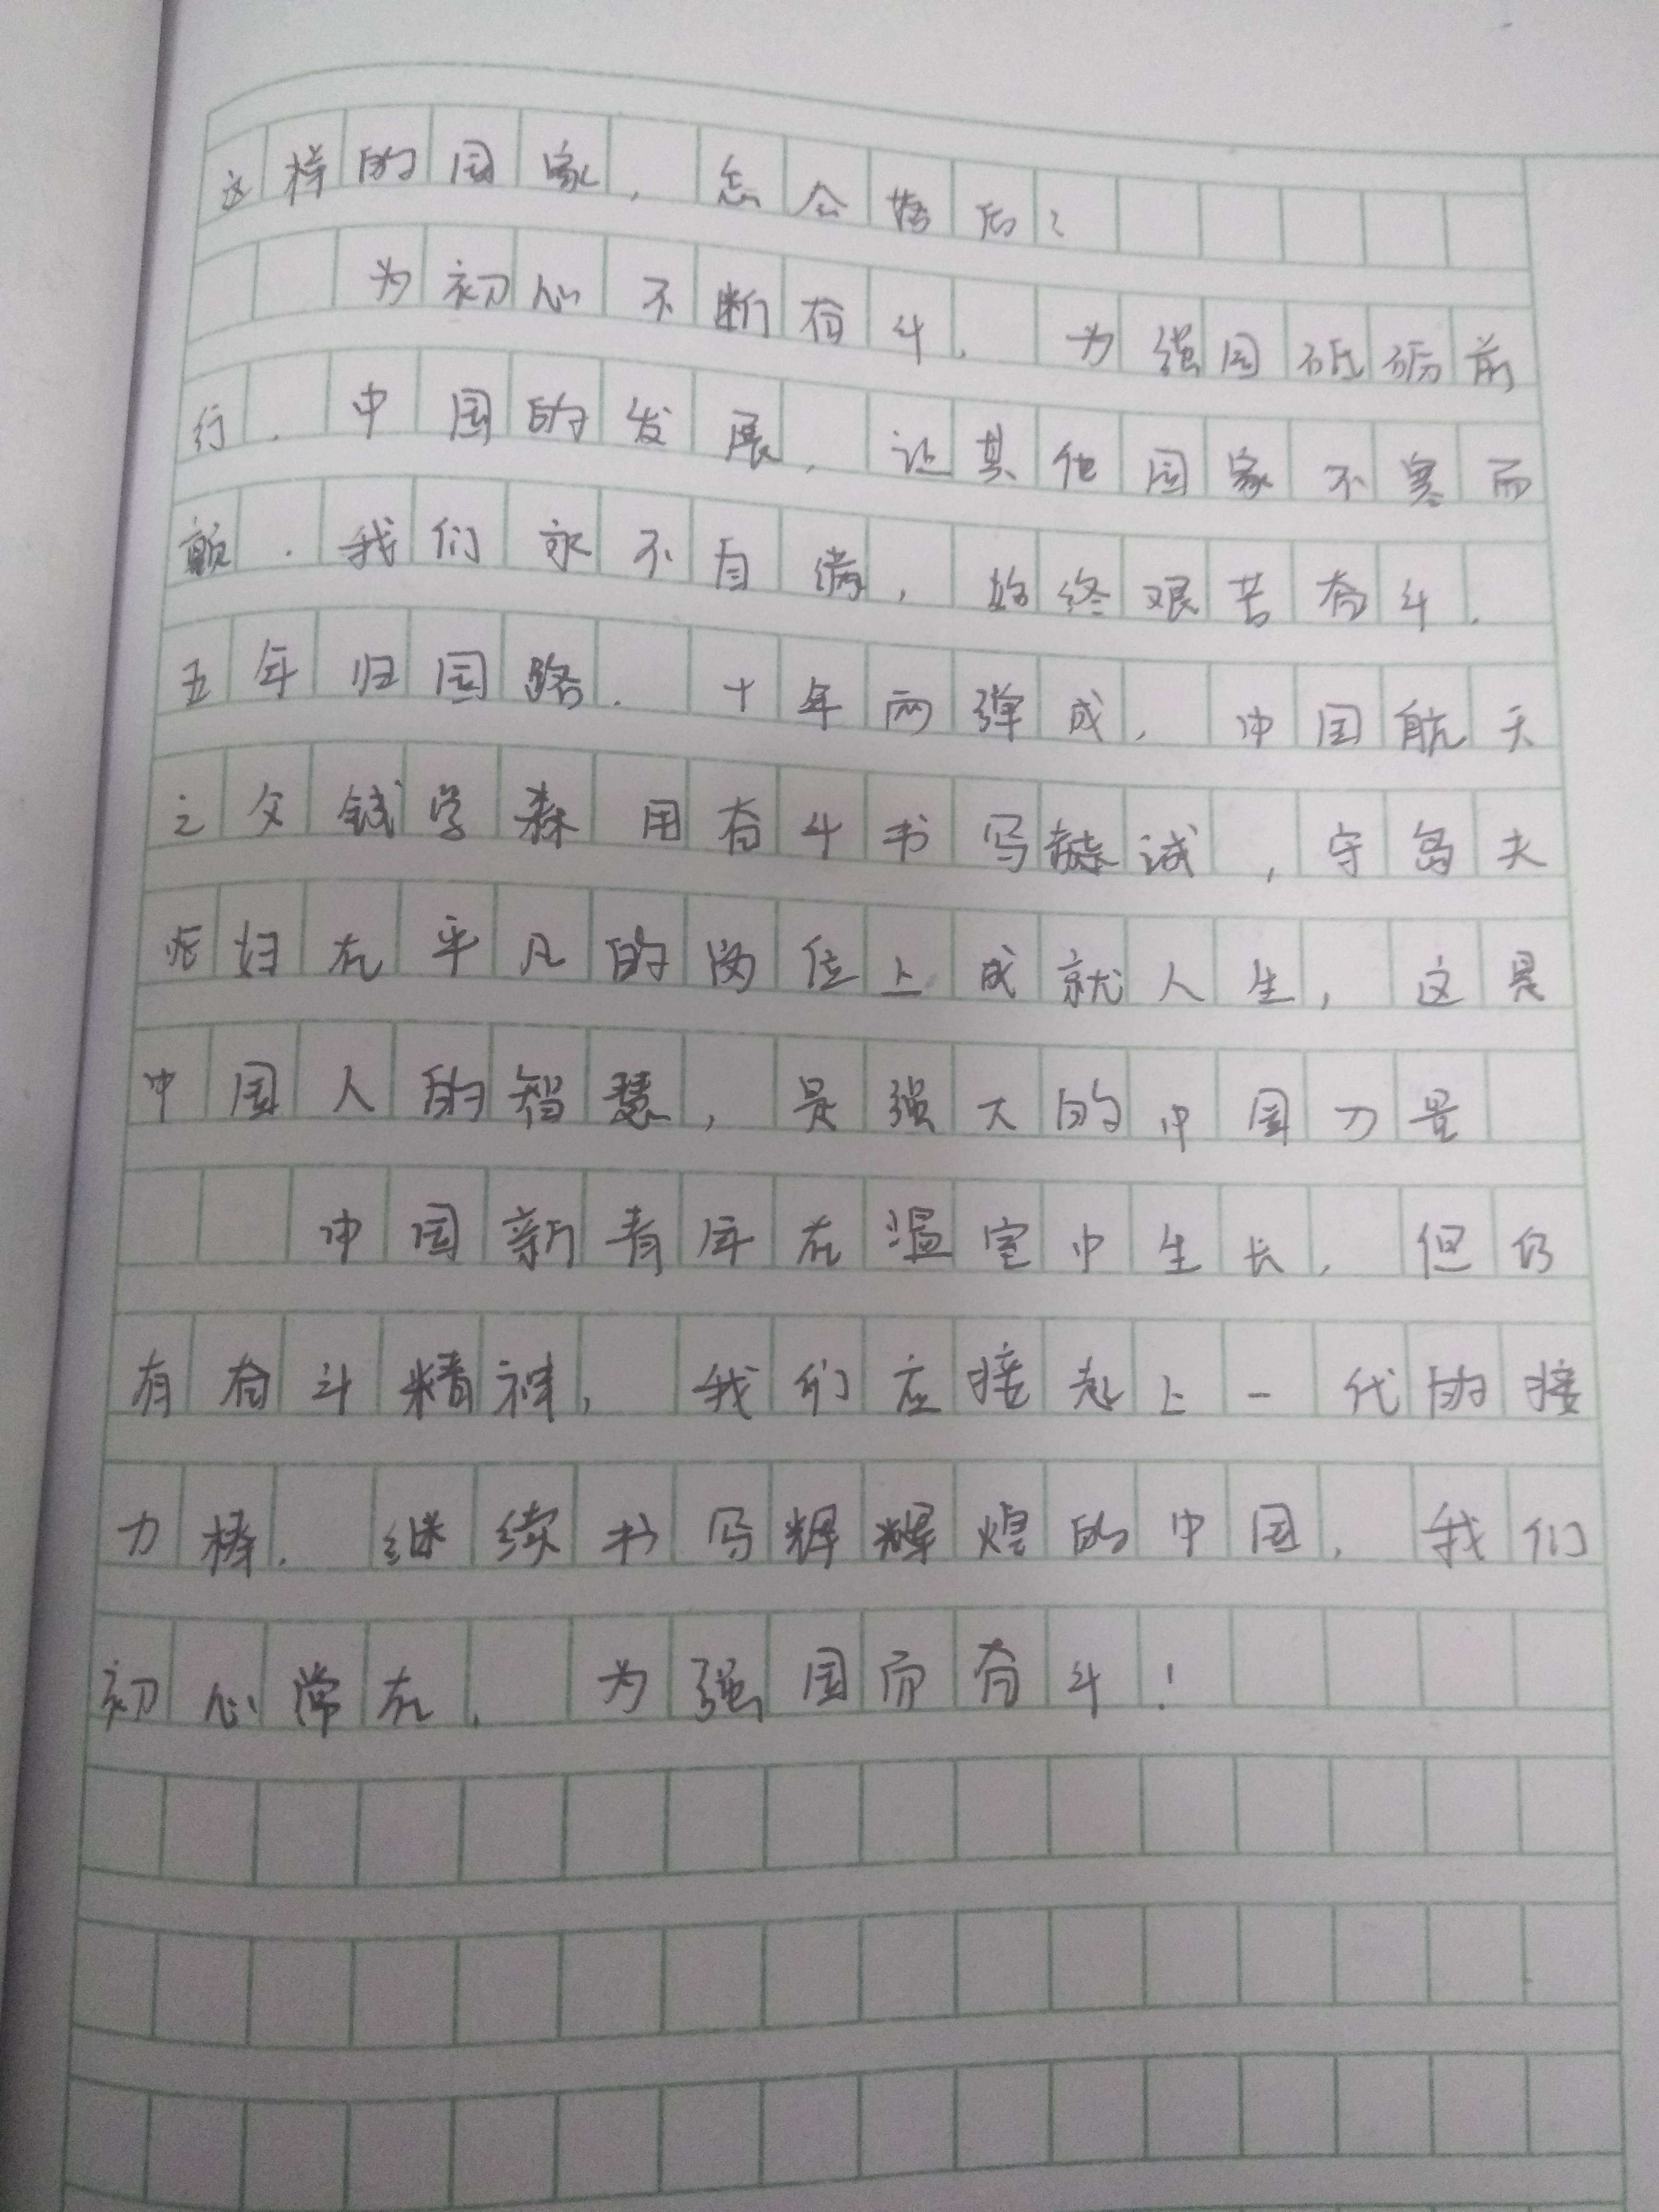 这样的国家，怎会落后？
为初心不断奋斗，为强国砥砺前
行．中国的发展，让其他国家不寒而
颤．我们永不自满，始终艰苦奋斗．
五年归国路．十年两弹成，中国航天
之父钱学森用奋斗书写赫诚，守岛夫
妇在平凡的岗位上成就人生，这是
中国人的智慧，是强大的中国力量
中国新青年在温室中生长，但仍
有奋斗精神，我们应接起上一代的接
力棒．继续书写辉煌的中国，我们
初心常在，为强国而奋斗！